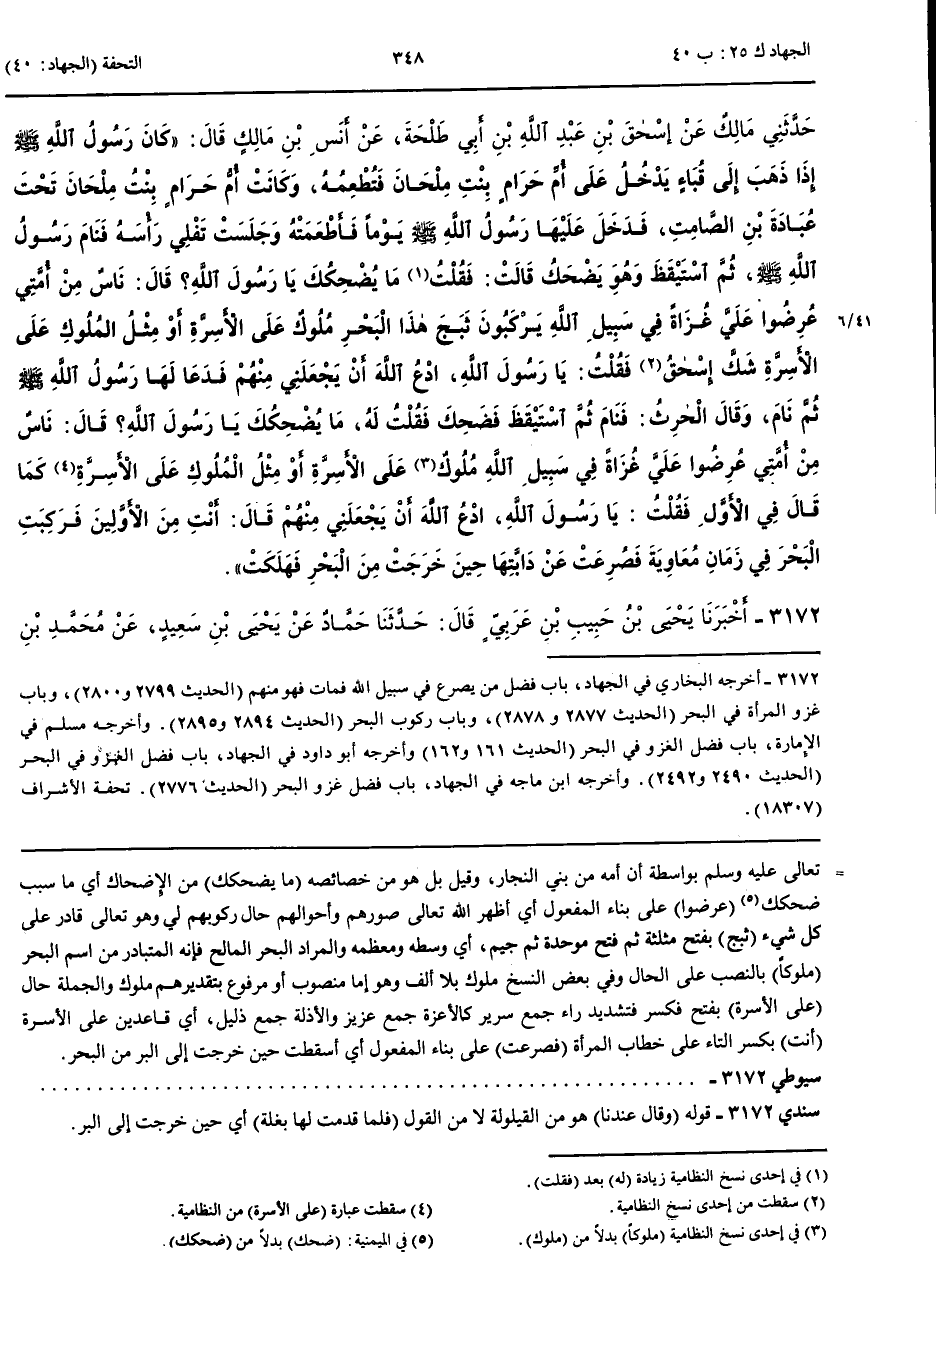 الجهاد ك ٢٥: ب ٤٠
٣٤٨
التحفة (الجهاد: ٤٠)
حَدَّثَنِي مَالِكٌ عَنْ إِسْحٰقَ بْنِ عَبْدِ اللَّهِ بْنِ أَبِي طَلْحَةَ، عَنْ أَنَسِ بْنِ مَالِكٍ قَالَ: «كَانَ رَسُولُ اللَّهِ ﷺ
إِذَا ذَهَبَ إِلَى قُبَاءٍ يَدْخُلُ عَلَى أُمِّ حَرَامٍ بِنْتِ مِلْحَانَ فَتُطْعِمُهُ، وَكَانَتْ أُمُّ حَرَامٍ بِنْتُ مِلْحَانَ تَحْتَ
عُبَادَةَ بْنِ الصَّامِتِ، فَدَخَلَ عَلَيْهَا رَسُولُ اللَّهِ ﷺ يَوْماً فَأَطْعَمَتْهُ وَجَلَسَتْ تَفْلِي رَأْسَهُ فَنَامَ رَسُولُ
اللَّهِ ﷺ، ثُمَّ اسْتَيْقَظَ وَهُوَ يَضْحَكُ قَالَتْ: فَقُلْتُ(١) مَا يُضْحِكُكَ يَا رَسُولَ اللَّهِ؟ قَالَ: نَاسٌ مِنْ أُمَّتِي
عُرِضُوا عَلَيَّ غُزَاةً فِي سَبِيلِ اللَّهِ يَرْكَبُونَ ثَبَجَ هٰذَا الْبَحْرِ مُلُوكٌ عَلَى الْأَسِرَّةِ أَوْ مِثْلُ المُلُوكِ عَلَى
٦/٤١
الْأَسِرَّةِ شَكَّ إِسْحٰقُ(٢) فَقُلْتُ: يَا رَسُولَ اللَّهِ، ادْعُ اللَّهَ أَنْ يَجْعَلَنِي مِنْهُمْ فَدَعَا لَهَا رَسُولُ اللَّهِ ﷺ
ثُمَّ نَامَ، وَقَالَ الْحٰرِثُ: فَنَامَ ثُمَّ اسْتَيْقَظَ فَضَحِكَ فَقُلْتُ لَهُ، مَا يُضْحِكُكَ يَا رَسُولَ اللَّهِ؟ قَالَ: نَاسٌ
مِنْ أُمَّتِي عُرِضُوا عَلَيَّ غُزَاةً فِي سَبِيلِ اللَّهِ مُلُوكٌ(٣) عَلَى الْأَسِرَّةِ أَوْ مِثْلُ الْمُلُوكِ عَلَى الْأَسِرَّةِ(٤) كَمَا
قَالَ فِي الْأَوَّلِ فَقُلْتُ : يَا رَسُولَ اللَّهِ، ادْعُ اللَّهَ أَنْ يَجْعَلَنِي مِنْهُمْ قَالَ: أَنْتِ مِنَ الْأَوَّلِينَ فَرَكِبَتِ
الْبَحْرَ فِي زَمَانِ مُعَاوِيَةَ فَصُرِعَتْ عَنْ دَابَّتِهَا حِينَ خَرَجَتْ مِنَ الْبَحْرِ فَهَلَكَتْ».
٣١٧٢ ـ أَخْبَرَنَا يَحْيَى بْنُ حَبِيبِ بْنِ عَرَبِيٍّ قَالَ: حَدَّثَنَا حَمَّادٌ عَنْ يَحْيَى بْنِ سَعِيدٍ، عَنْ مُحَمَّدِ بْنِ
٣١٧٢ ـ أخرجه البخاري في الجهاد، باب فضل من يصرع في سبيل الله فمات فهو منهم (الحديث ٢٧٩٩ و٢٨٠٠)، وباب
غزو المرأة في البحر (الحديث ٢٨٧٧ و ٢٨٧٨)، وباب ركوب البحر (الحديث ٢٨٩٤ و٢٨٩٥). وأخرجه مسلم في
الإمارة، باب فضل الغزو في البحر (الحديث ١٦١ و١٦٢) وأخرجه أبو داود في الجهاد، باب فضل الغزو في البحر
(الحديث ٢٤٩٠ و٢٤٩٢). وأخرجه ابن ماجه في الجهاد، باب فضل غزو البحر (الحديث ٢٧٧٦). تحفة الأشراف
(١٨٣٠٧).
= تعالى عليه وسلم بواسطة أن أمه من بني النجار، وقيل بل هو من خصائصه (ما يضحكك) من الإضحاك أي ما سبب
ضحكك(٥) (عرضوا) على بناء المفعول أي أظهر الله تعالى صورهم وأحوالهم حال ركوبهم لي وهو تعالى قادر على
كل شيء (ثبج) بفتح مثلثة ثم فتح موحدة ثم جيم، أي وسطه ومعظمه والمراد البحر المالح فإنه المتبادر من اسم البحر
(ملوكاً) بالنصب على الحال وفي بعض النسخ ملوك بلا ألف وهو إما منصوب أو مرفوع بتقديرهم ملوك والجملة حال
(على الأسرة) بفتح فكسر فتشديد راء جمع سرير كالأعزة جمع عزيز والأذلة جمع ذليل، أي قاعدين على الأسرة
(أنت) بكسر التاء على خطاب المرأة (فصرعت) على بناء المفعول أي أسقطت حين خرجت إلى البر من البحر.
سيوطي ٣١٧٢ ـ . . . . . . . . . . . . . . . . . . . . . . . . . . . . . . . . . . . . . . . . . . . . . . . . . . . . . .
سندي ٣١٧٢ ـ قوله (وقال عندنا) هو من القيلولة لا من القول (فلما قدمت لها بغلة) أي حين خرجت إلى البر.
(١) في إحدى نسخ النظامية زيادة (له) بعد (فقلت).
(٢) سقطت من إحدى نسخ النظامية.
(٣) في إحدى نسخ النظامية (ملوكاً) بدلاً من (ملوك).
(٤) سقطت عبارة (على الأسرة) من النظامية.
(٥) في الميمنية: (ضحك) بدلاً من (ضحكك).